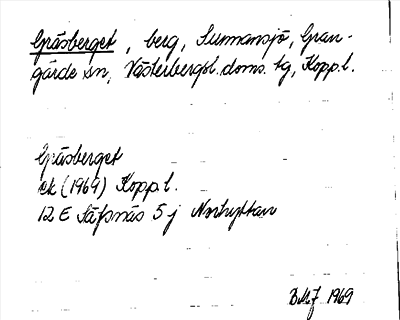 Gräsberget, berg, Sunnansjö, Gran-
gärde sn, Västerbergsl. doms. tg, Kopp.l.
Gräsberget
ek (1969) Kopp.l.
12 E Säfsnäs 5 j Norhyttan
1969